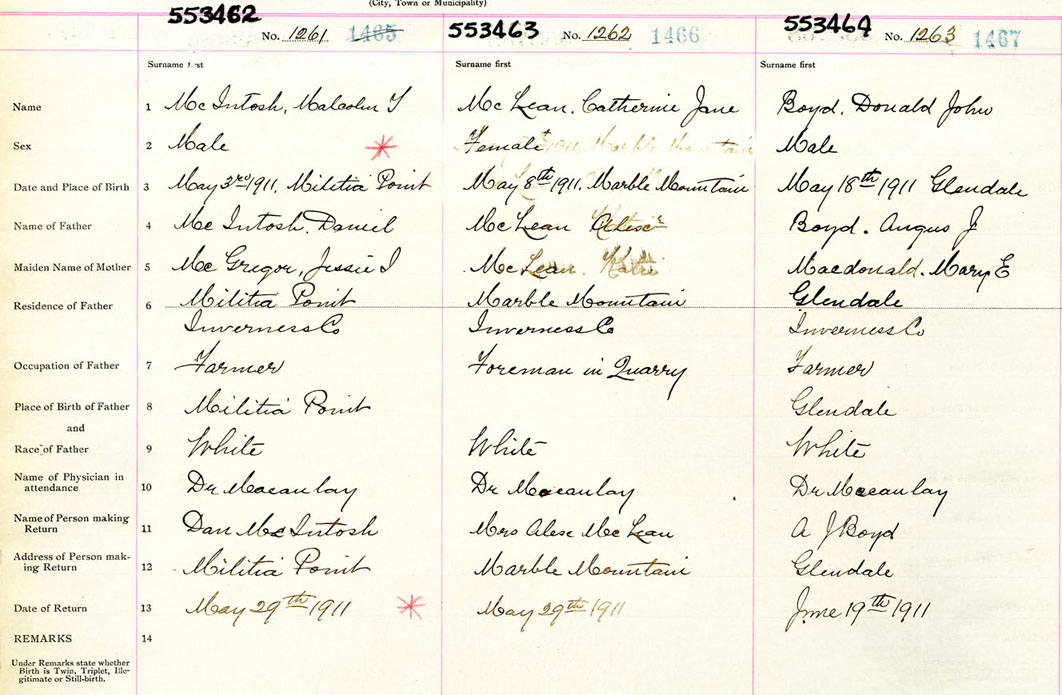 (City, Town or Municipality)
553462 No. 1261 1465 553463 No. 1262 1466 553464 No. 1263 1467
Surname first Surname first Surname first
Name 1 Mc Intosh, Malcolm Mc Lean, Catherine Jane Boyd, Donald John
Sex 2 Male Female Male
Date and Place of Birth 3 May 3rd 1911, Militia Point May 8th 1911, Marble Mountain May 18th 1911 Glendale
Name of Father 4 Mc Intosh, Daniel Mc Lean Boyd, Angus J
Maiden Name of Mother 5 Mc Gregor, Jessie Mc Lean, Katie Macdonald, Mary E
Residence of Father 6 Militia Point Marble Mountain Glendale
Inverness Co Inverness Co Inverness Co
Occupation of Father 7 Farmer Foreman in Quarry Farmer
Place of Birth of Father 8 Militia Point Glendale
and
Race of Father 9 White White White
Name of Physician in
attendance 10 Dr Macaulay Dr Macaulay Dr Macaulay
Name of Person making
Return 11 Dan Mc Intosh Mrs Mc Lean A J Boyd
Address of Person mak-
ing Return 12 Militia Point Marble Mountain Glendale
Date of Return 13 May 29th 1911 May 29th 1911 June 19th 1911
REMARKS 14
Under Remarks state whether
Birth is Twin, Triplet, Ille-
gitimate or Still-birth.